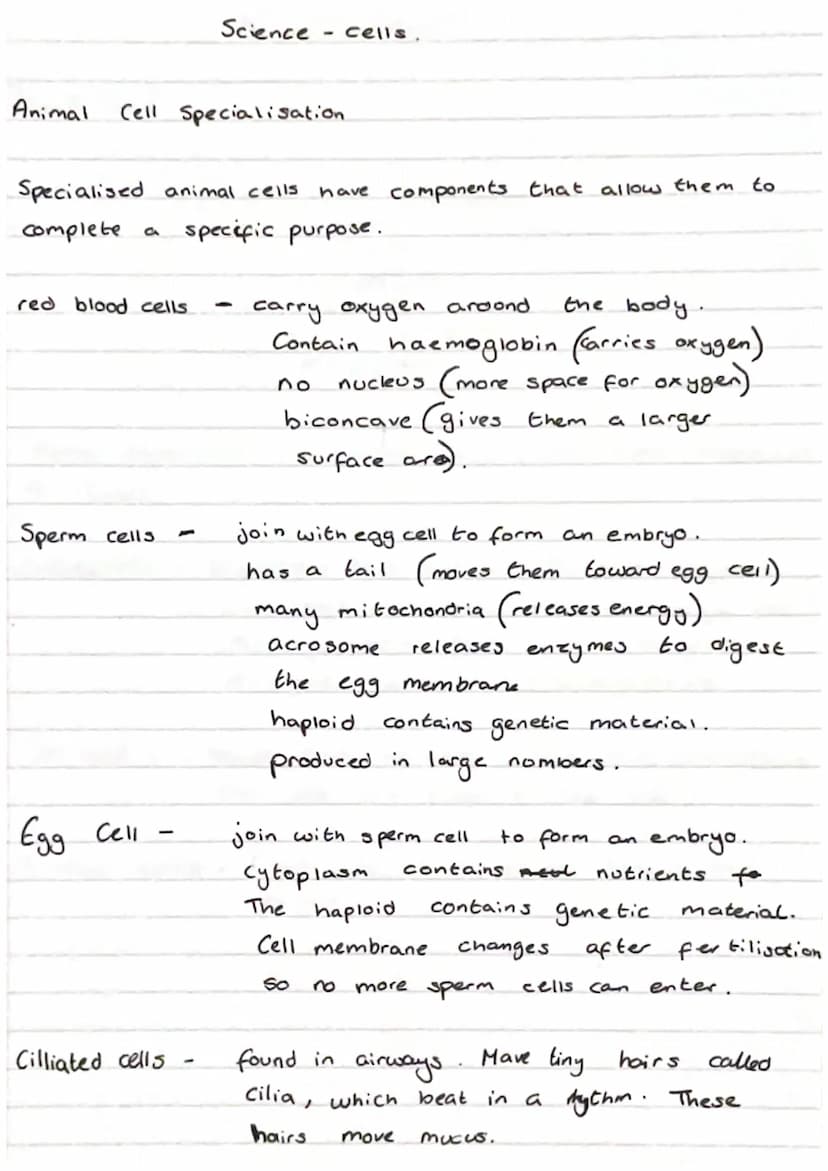 Science - cells.
Animal Cell Specialisation
Specialised animal cells have components that allow them to
complete a specific purpose.
red blood cells - carry oxygen around the body.
Contain haemoglobin (carries oxygen)
no nucleus (more space for oxygen)
biconcave (gives them a larger
surface area).
Sperm cells - join with egg cell to form an embryo.
has a tail (moves them toward egg cell)
many mitochondria (releases energy)
acrosome releases enzymes to digest
the egg membrane
haploid contains genetic material.
produced in large numbers.
Egg Cell - join with sperm cell to form an embryo.
Cytoplasm contains nutrients
The haploid contains genetic material.
Cell membrane changes after fertilisation
so no more sperm cells can enter.
Cilliated cells - found in airways. Have tiny hairs called
Cilia, which beat in a rythm. These
hairs move mucus.